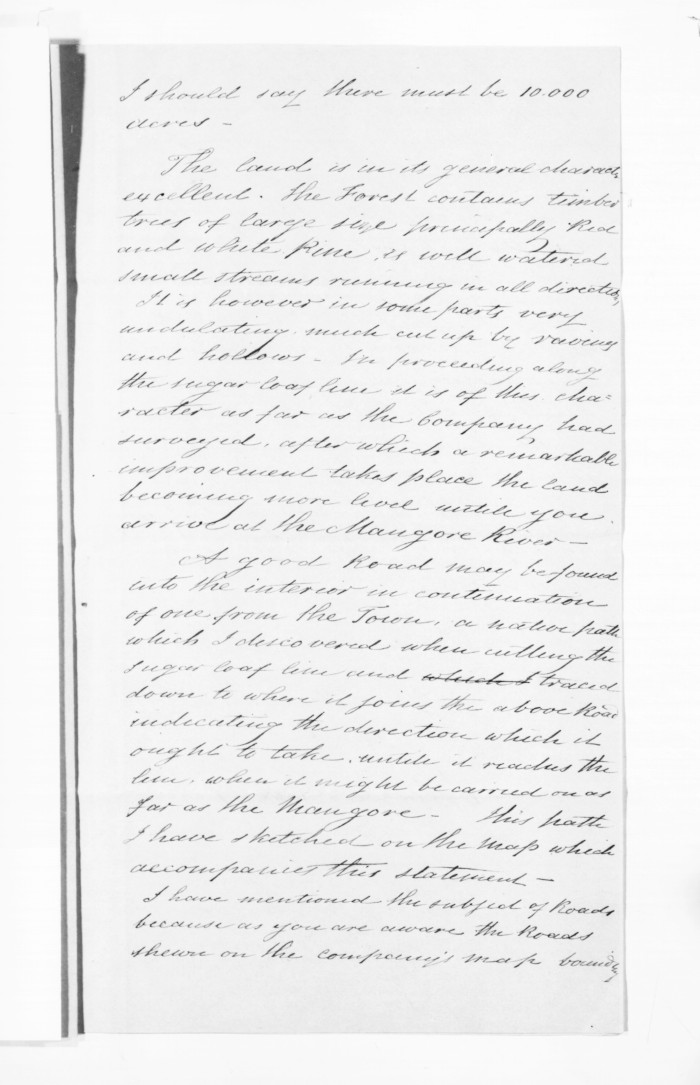 I should say there must be 10.000
acres -
The land is in its general charact
excellent. the Forest contains timber
trees of large size principally Red
and white Pine, is well watered
small streams running in all direction
It is however in some parts very
undulating. much cut up by ravines
and hollows - In proceeding along
the sugar loaf line it is of this cha=
racter as far as the Company had
surveyed, after which a remarkable
improvement takes place the land
becoming more level untill you
arrive at the Mangore River -
A good Road may be found
into the interior in continuation
of one from the Town, a native path
which I discovered when cutting the
sugar loaf line and which I traced
down to where it joins the above Road
indicating the direction which it
ought to take. untill it reaches the
line. when it might be carried on as
far as the Mangore - this path
I have sketched on the map which
accompanies this statement -
I have mentioned the subject of Roads
because as you are aware the Roads
shewn on the company's map